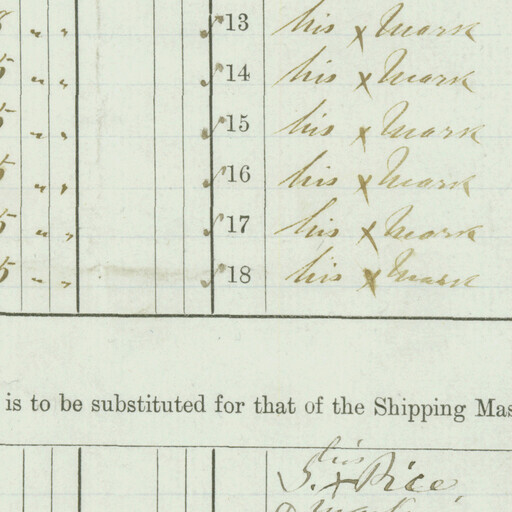 " " 13 his x Mark
5 " " 14 his x Mark
5 " " 15 his x Mark
5 " " 16 his x Mark
5 " " 17 his x Mark
5 " " 18 his x Mark
is to be substituted for that of the Shipping Mas
his
S. x Rice,
mark